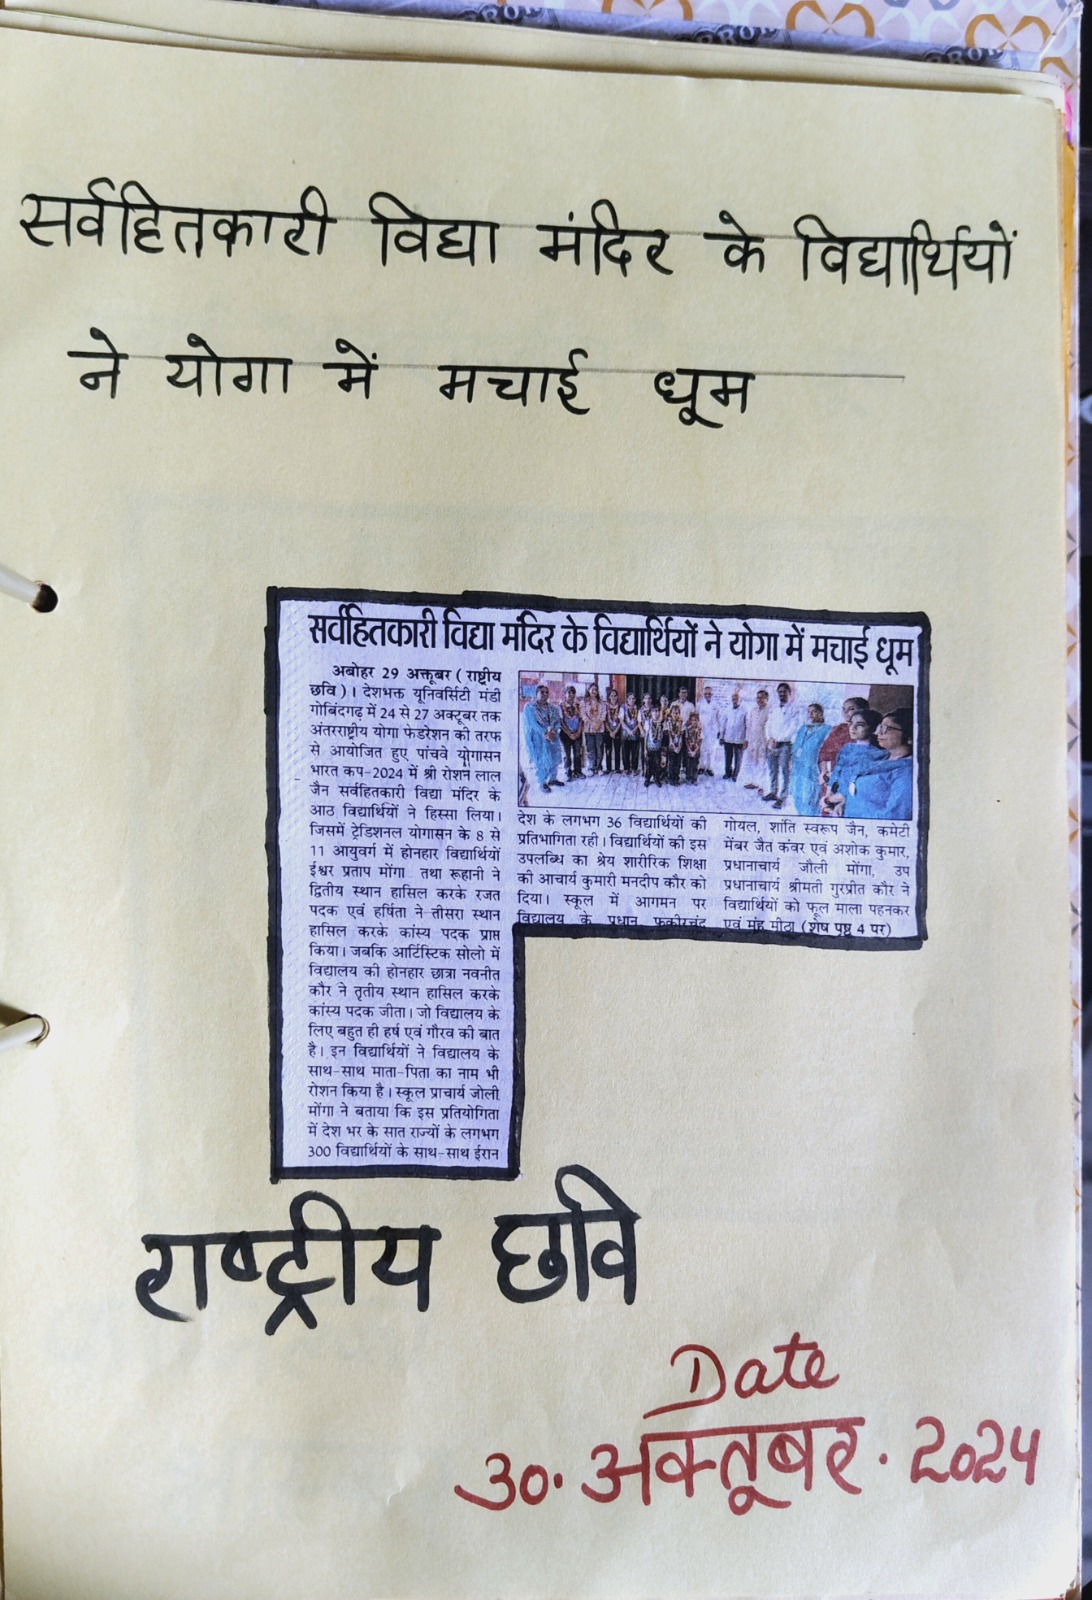 सर्वहितकारी विद्या मंदिर के विद्यार्थियों
ने योगा में मचाई धूम
सर्वहितकारी विद्या मंदिर के विद्यार्थियों ने योगा में मचाई धूम
अबोहर 29 अक्तूबर (राष्ट्रीय
छवि)। देशभक्त यूनिवर्सिटी मंडी
गोबिंदगढ़ में 24 से 27 अक्टूबर तक
अंतरराष्ट्रीय योगा फेडरेशन की तरफ
से आयोजित हुए पांचवे योगासन
भारत कप-2024 में श्री रोशन लाल
जैन सर्वहितकारी विद्या मंदिर के
आठ विद्यार्थियों ने हिस्सा लिया।
जिसमें ट्रेडिशनल योगासन के 8 से
11 आयुवर्ग में होनहार विद्यार्थियों
ईश्वर प्रताप मोंगा तथा रूहानी ने
द्वितीय स्थान हासिल करके रजत
पदक एवं हर्षिता ने तीसरा स्थान
हासिल करके कांस्य पदक प्राप्त
किया। जबकि आर्टिस्टिक सोलो में
विद्यालय की होनहार छात्रा नवनीत
कौर ने तृतीय स्थान हासिल करके
कांस्य पदक जीता। जो विद्यालय के
लिए बहुत ही हर्ष एवं गौरव की बात
है। इन विद्यार्थियों ने विद्यालय के
साथ-साथ माता-पिता का नाम भी
रोशन किया है। स्कूल प्राचार्य जोली
मोंगा ने बताया कि इस प्रतियोगिता
में देश भर के सात राज्यों के लगभग
300 विद्यार्थियों के साथ-साथ ईरान
देश के लगभग 36 विद्यार्थियों की
प्रतिभागिता रही। विद्यार्थियों की इस
उपलब्धि का श्रेय शारीरिक शिक्षा
की आचार्य कुमारी मनदीप कौर को
दिया। स्कूल में आगमन पर
विद्यालय के प्रधान फकीरचंद
गोयल, शांति स्वरूप जैन, कमेटी
मेंबर जैत कंवर एवं अशोक कुमार,
प्रधानाचार्य जौली मोंगा, उप
प्रधानाचार्य श्रीमती गुरप्रीत कौर ने
विद्यार्थियों को फूल माला पहनकर
एवं मुंह मीठा (शेष पृष्ठ 4 पर)
राष्ट्रीय छवि
Date
30. अक्तूबर. 2024